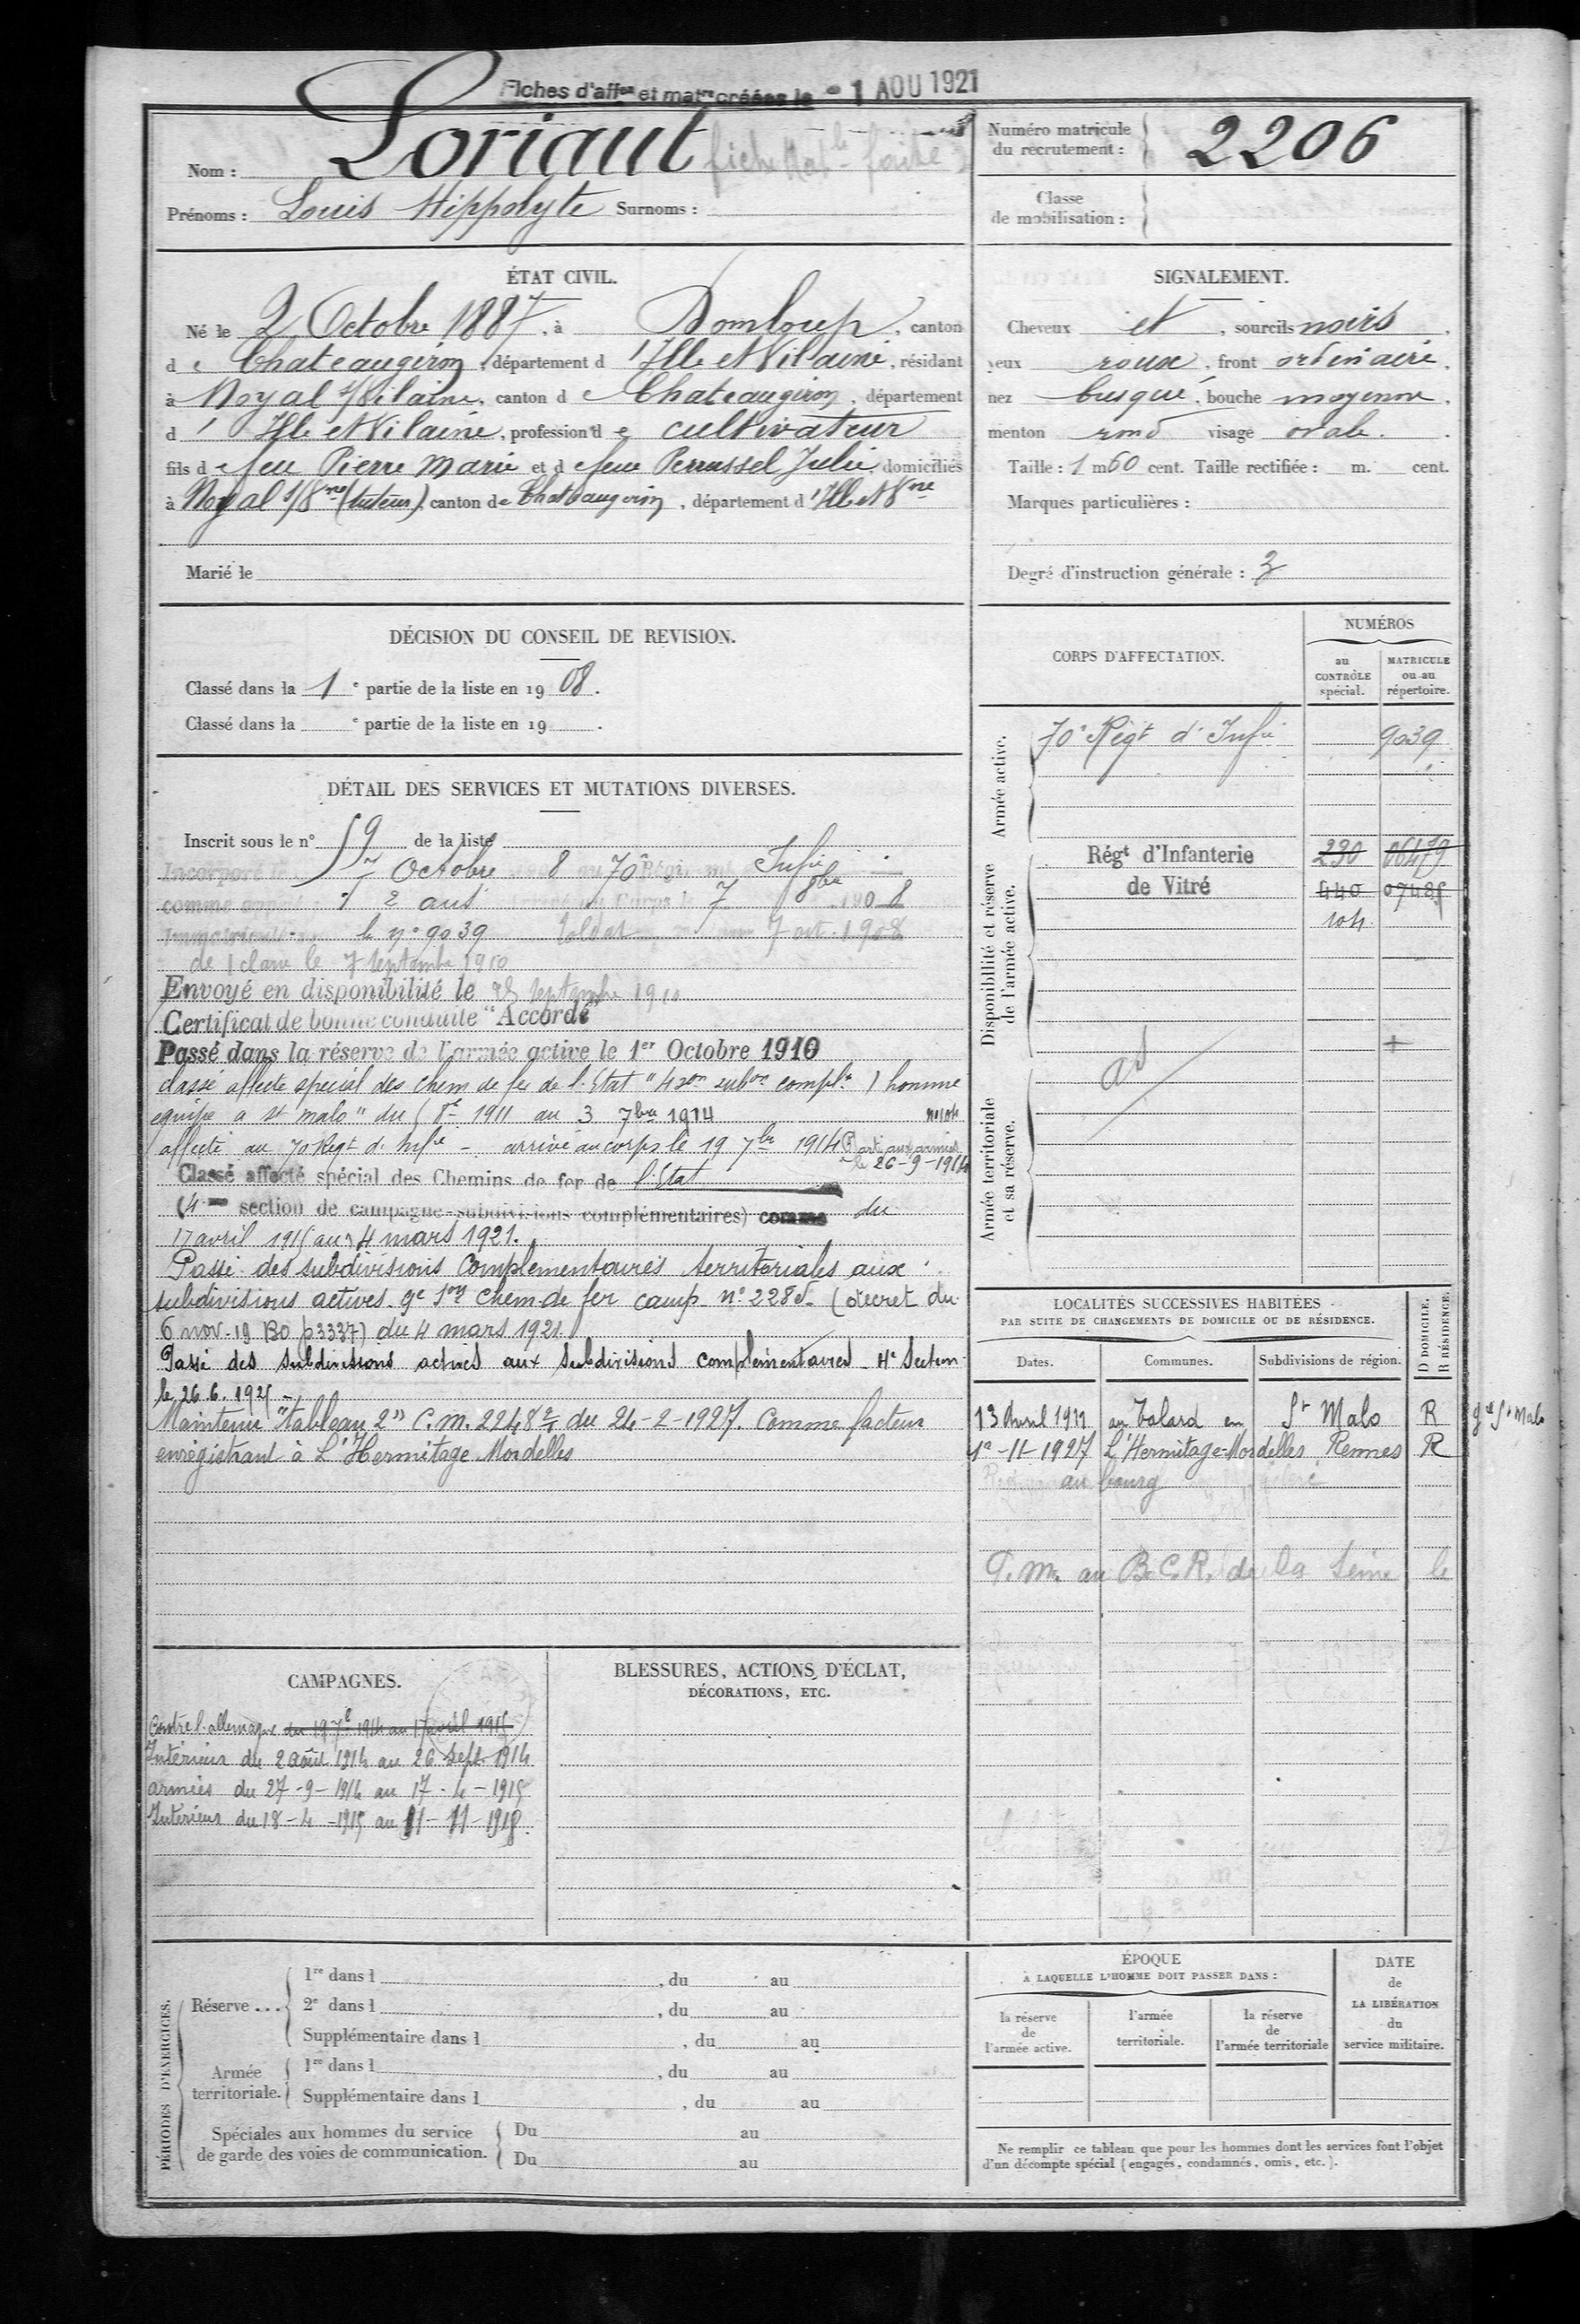 Fiches d'aff^on et mat^re créées le - 1 AOU 1921
Nom : Loriaut fiche Mat^le faite
Prénoms : Louis Hippolyte Surnoms :
Numéro matricule du recrutement : 2206
Classe de mobilisation :
ÉTAT CIVIL.
Né le 2 Octobre 1887, à Domloup, canton
d e Chateaugiron, département d 'Ille et Vilaine, résidant
à Noyal s/Vilaine, canton d e Chateaugiron, département
d 'Ille et Vilaine, profession d e cultivateur
fils d e feu Pierre Marie et d e feue Perrussel Julie, domiciliés
à Noyal s/V^ne (tuteur), canton de Chateaugiron, département d 'Ille et V^ne
Marié le
SIGNALEMENT.
Cheveux et, sourcils noirs,
yeux roux, front ordinaire,
nez busqué, bouche moyenne,
menton rond visage ovale.
Taille : 1 m 60 cent. Taille rectifiée : m. cent.
Marques particulières :
Degré d'instruction générale : 3
DÉCISION DU CONSEIL DE REVISION.
Classé dans la 1^e partie de la liste en 19 08.
Classé dans la ^e partie de la liste en 19 .
DÉTAIL DES SERVICES ET MUTATIONS DIVERSES.
Inscrit sous le n° 59 de la liste
Incorporé 7 Octobre 8 au 70^e Régi Inf^ie
comme appelé 2 ans au Corps le 7 8^bre 1908
Immatriculé le n° 9039 soldat 7 oct. 1908
de 1 classe le 7 septembre 1910
Envoyé en disponibilité le 25 septembre 1910
Certificat de bonne conduite "Accordé"
Passé dans la réserve de l'armée active le 1^er Octobre 1910
classé affecté special des chem de fer de l'Etat "4 s^on subon compl^re) homme
equipe a st malo" du 1911 au 3 7^bre 1914
affecté au 70 Regt d'Inf^ie - arrivé au corps le 19 7^bre 1914 Parti aux armées
le 26-9-1914
Classé affecté spécial des Chemins de fer de l'Etat
(4^me section de campagne subdivisions complémentaires) comme du
17 avril 1915 au 4 mars 1921.
Passé des subdivisions Complémentaires territoriales aux
subdivisions actives 9^e s^on chem de fer camp n° 228 (décret du
6 nov. 19 BO p 3337) du 4 mars 1921.
Passé des subdivisions actives aux subdivisions complémentaires 4^e Section
le 26.6.1925 -
Maintenu "tableau 2" C.M. 2248 2/4 du 24-2-1927. Comme facteur
enregistrant à L'Hermitage Mordelles
CORPS D'AFFECTATION.
NUMÉROS
au CONTRÔLE spécial.
MATRICULE ou au répertoire.
Armée active.
70^e Régt d'Inf^ie 9039
Disponibilité et réserve de l'armée active.
Rég^t d'Infanterie 230 06479
de Vitré 440 07485
104
Armée territoriale et sa réserve.
LOCALITÉS SUCCESSIVES HABITÉES
PAR SUITE DE CHANGEMENTS DE DOMICILE OU DE RÉSIDENCE.
Dates. Communes. Subdivisions de région. D DOMICILE. R RÉSIDENCE.
13 Avril 1911 au Talard en S^t Malo R g^de S^t Malo
1^e-11-1927 L'Hermitage-Mordelles Rennes R
au bourg
P.m. au B.C.R. de la Seine le
CAMPAGNES.
Contre l'allemagne du 19 7^bre 1914 au 17 avril 1915
Intérieur du 2 août 1914 au 26 sept 1914
armées du 27-9-1914 au 17-4-1915
Intérieur du 18-4-1915 au 11-11-1918.
BLESSURES, ACTIONS D'ÉCLAT,
DÉCORATIONS, ETC.
PÉRIODES D'EXERCICES.
Réserve ... 1^re dans l , du au
2^e dans l , du au
Supplémentaire dans l , du au
Armée territoriale. 1^re dans l , du au
Supplémentaire dans l , du au
Spéciales aux hommes du service de garde des voies de communication. Du au
Du au
ÉPOQUE
A LAQUELLE L'HOMME DOIT PASSER DANS :
la réserve de l'armée active.
l'armée territoriale.
la réserve de l'armée territoriale
DATE de LA LIBÉRATION du service militaire.
Ne remplir ce tableau que pour les hommes dont les services font l'objet
d'un décompte spécial (engagés, condamnés, omis, etc.).